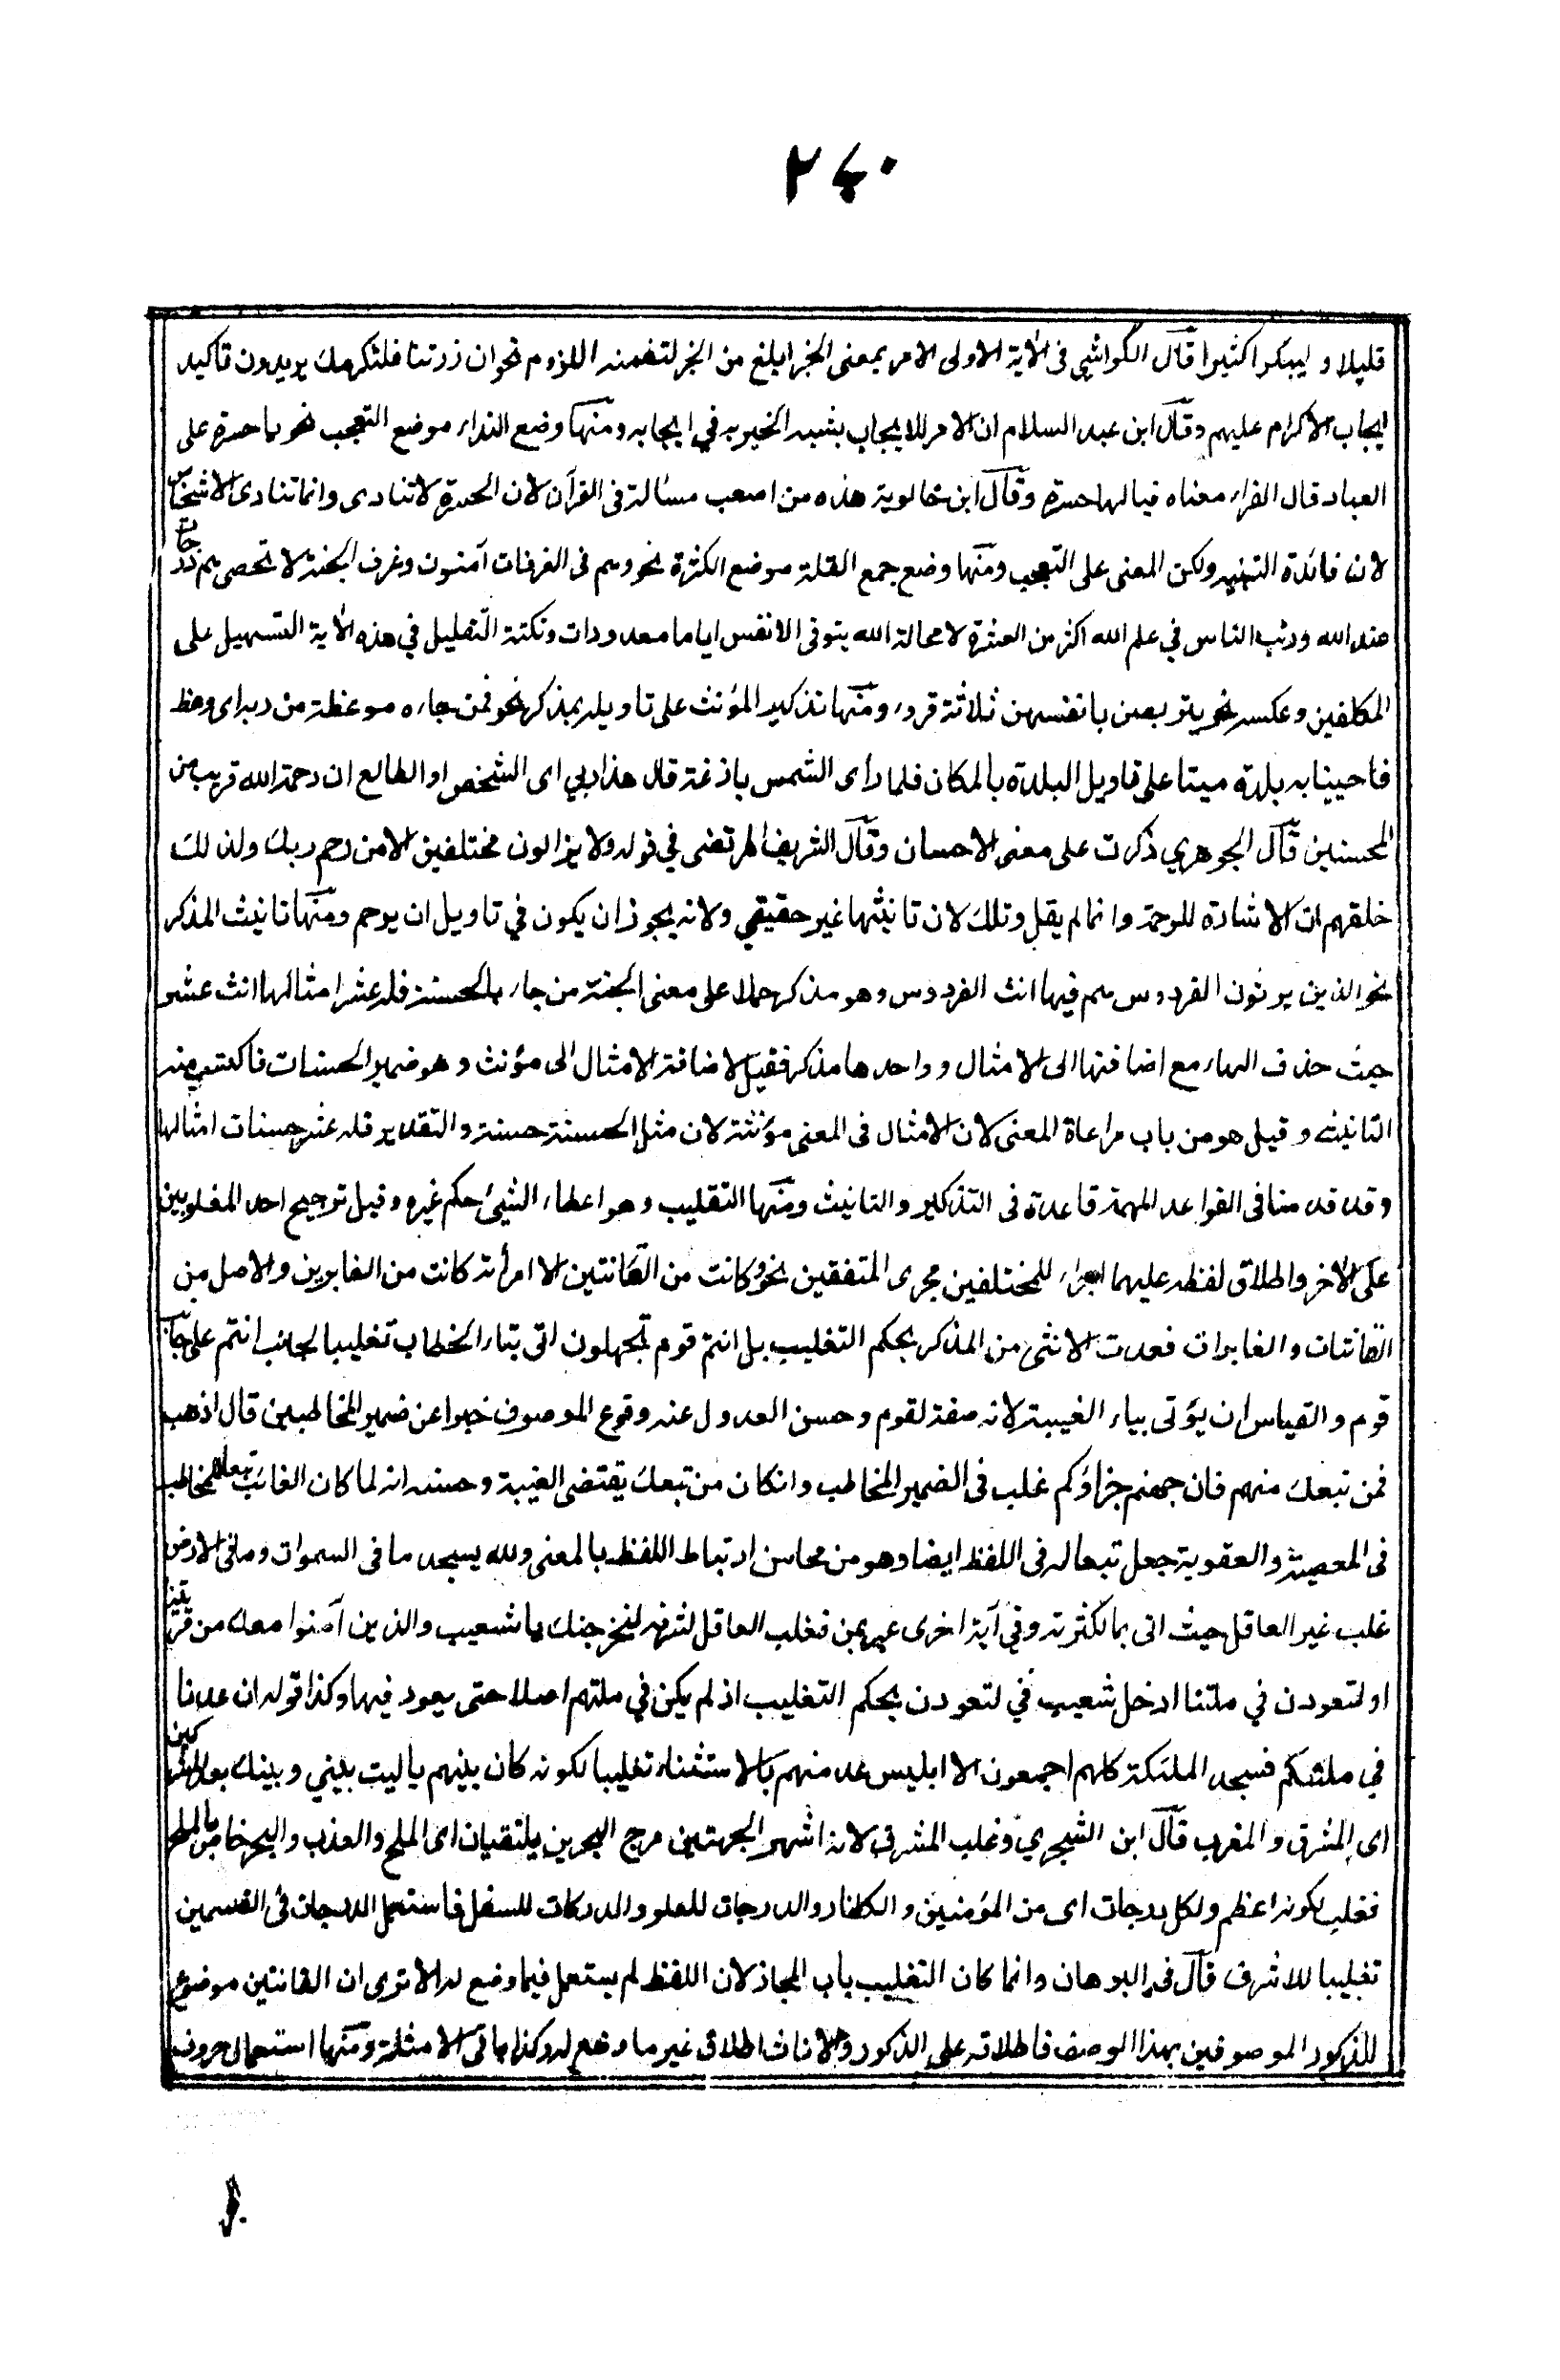 ٢٤٠
قليلا و ليبكوا كثيرا قال الكواشى فى الاية الاولى الامر بمعنى الخبر ابلغ من الخبر لتضمنه اللزوم نحو ان زرتنا فلنكرمك يريدون تاكيد
ايجاب الاكرام عليهم وقال ابن عبد السلام ان الامر للايجاب يشبه الخبر به في ايجابه ومنها وضع النداء موضع التعجب نحو يا حسرة على
العباد قال الفراء معناه فيالها حسرة وقال ابن خالوية هذه من اصعب مسألة فى القرآن لان الحسرة لا تنادى وانما تنادى الاشخاص
لان فائدة التنبيه ولكن المعنى على التعجب ومنها وضع جمع القلة موضع الكثرة نحو وهم فى الغرفات آمنون وغرف الجنة لا تحصى هم درجات
عند الله ورتب الناس في علم الله اكثر من العشرة لا محالة الله يتوفى الانفس اياما معدودات ونكتة التقليل في هذه الاية التسهيل على
المكلفين وعكسه نحو يتربصن بانفسهن ثلاثة قروء ومنها تذكير المؤنث على تاويله بمذكر نحو فمن جاءه موعظة من ربه اى وعظ
فاحيينا به بلدة ميتا على تاويل البلدة بالمكان فلما رأى الشمس بازغة قال هذا ربي اى الشخص او الطالع ان رحمة الله قريب من
المحسنين قال الجوهري ذكرت على معنى الاحسان وقال الشريف المرتضى في قوله ولا يزالون مختلفين الا من رحم ربك ولذلك
خلقهم ان الاشارة للرحمة وانما لم يقل وتلك لان تانيثها غير حقيقي ولانه يجوز ان يكون في تاويل ان يرحم ومنها تانيث المذكر
نحو الذين يرثون الفردوس هم فيها انث الفردوس وهو مذكر حملا على معنى الجنة من جاء بالحسنة فله عشر امثالها انث عشر
حيث حذف الهاء مع اضافتها الى الامثال وواحدها مذكر فقيل لاضافة الامثال الى مؤنث وهو ضمير الحسنات فاكتسب منه
التانيث وقيل هو من باب مراعاة المعنى لان الامثال فى المعنى مؤنثة لان مثل الحسنة حسنة والتقدير فله عشر حسنات امثالها
وقد قدمنا فى القواعد المهمة قاعدة فى التذكير والتانيث ومنها التقليب وهو اعطاء الشيئ حكم غيره وقيل ترجيح احد المغلوبين
على الاخر واطلاق لفظه عليهما اجراء للمختلفين مجرى المتفقين نحو وكانت من القانتين الا امرأته كانت من الغابرين والاصل من
القانتات والغابرات فعدت الانثى من المذكر بحكم التغليب بل انتم قوم تجهلون اتى بتاء الخطاب تغليبا لجانب انتم على جانب
قوم والقياس ان يؤتى بياء الغيبة لانه صفة لقوم وحسن العدول عنه وقوع الموصوف خبرا عن ضمير المخاطبين قال اذهب
فمن تبعك منهم فان جهنم جزاؤكم غلب فى الضمير المخاطب وانكان من تبعك يقتضى الغيبة وحسنه انه لما كان الغائب تبعا للمخاطب
فى المعصية والعقوبة جعل تبعا له فى اللفظ ايضا وهو من محاسن ارتباط اللفظ بالمعنى ولله يسجد ما فى السموات وما فى الارض
غلب غير العاقل حيث اتى بما لكثرته وفي آية اخرى عبر بمن فغلب العاقل لشرفه لنخرجنك يا شعيب والذين آمنوا معك من قريتنا
او لتعودن في ملتنا ادخل شعيب في لتعودن بحكم التغليب اذ لم يكن في ملتهم اصلا حتى يعود فيها وكذا قوله ان عدنا
في ملتكم فسجد الملئكة كلهم اجمعون الا ابليس عد منهم بالاستثناء تغليبا لكونه كان بينهم ياليت بيني وبينك بعد المشرقين
اى المشرق والمغرب قال ابن الشجري وغلب المشرق لانه اشهر الجهتين مرج البحرين يلتقيان اى الملح والعذب والبحر خاص بالملح
فغلب لكونه اعظم ولكل درجات اى من المؤمنين والكفار والدرجات للعلو والدركات للسفل فاستعمل الدرجات فى القسمين
تغليبا للاشرف قال فى البرهان وانما كان التغليب باب المجاز لان اللفظ لم يستعمل فيما وضع له الا ترى ان القانتين موضوع
للذكور الموصوفين بهذا الوصف فاطلاقه على الذكور والاناث اطلاق غير ما وضع له وكذا باقى الامثلة ومنها استعمال حروف